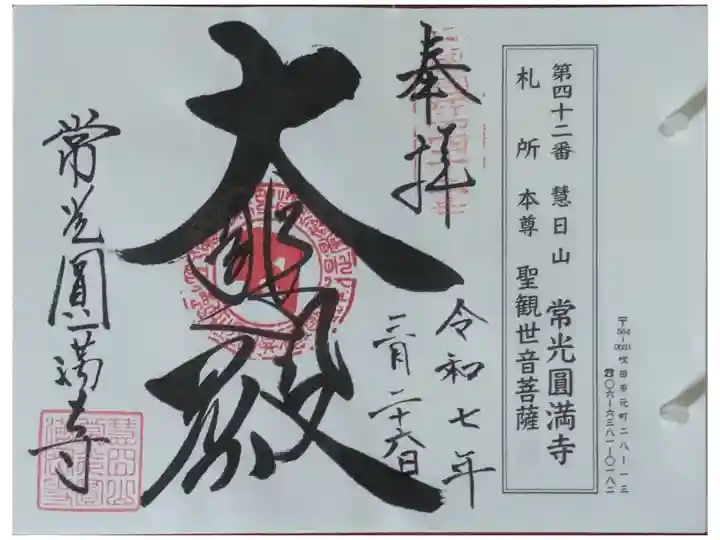 〒564-0031 吹田市元町二八ー一三
☎〇六ー六三八一ー〇一八二
第四十二番 慧日山 常光圓満寺
札所 本尊 聖観世音菩薩
奉拝
令和七年
三月二十六日
大悲殿
常光圓満寺